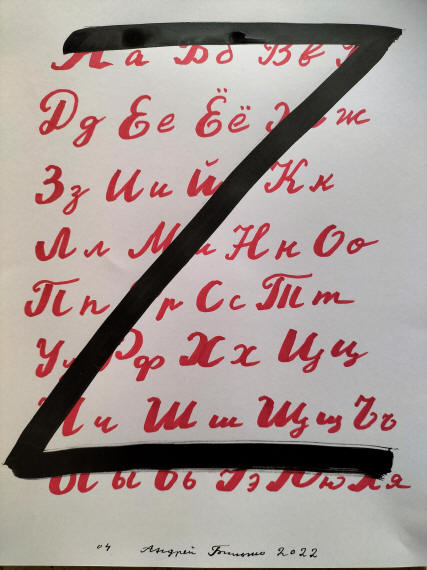 Z
Аа Бб Вв Г
Дд Ее Ёё Жж
Зз Ии Й Кк
Лл Мм Нн Оо
Пп Рр Сс Тт
Уу Фф Хх Цц
Чч Шш Щщ Ъъ
Ыы Ьь Ээ Юю Яя
04 Андрей Бильжо 2022